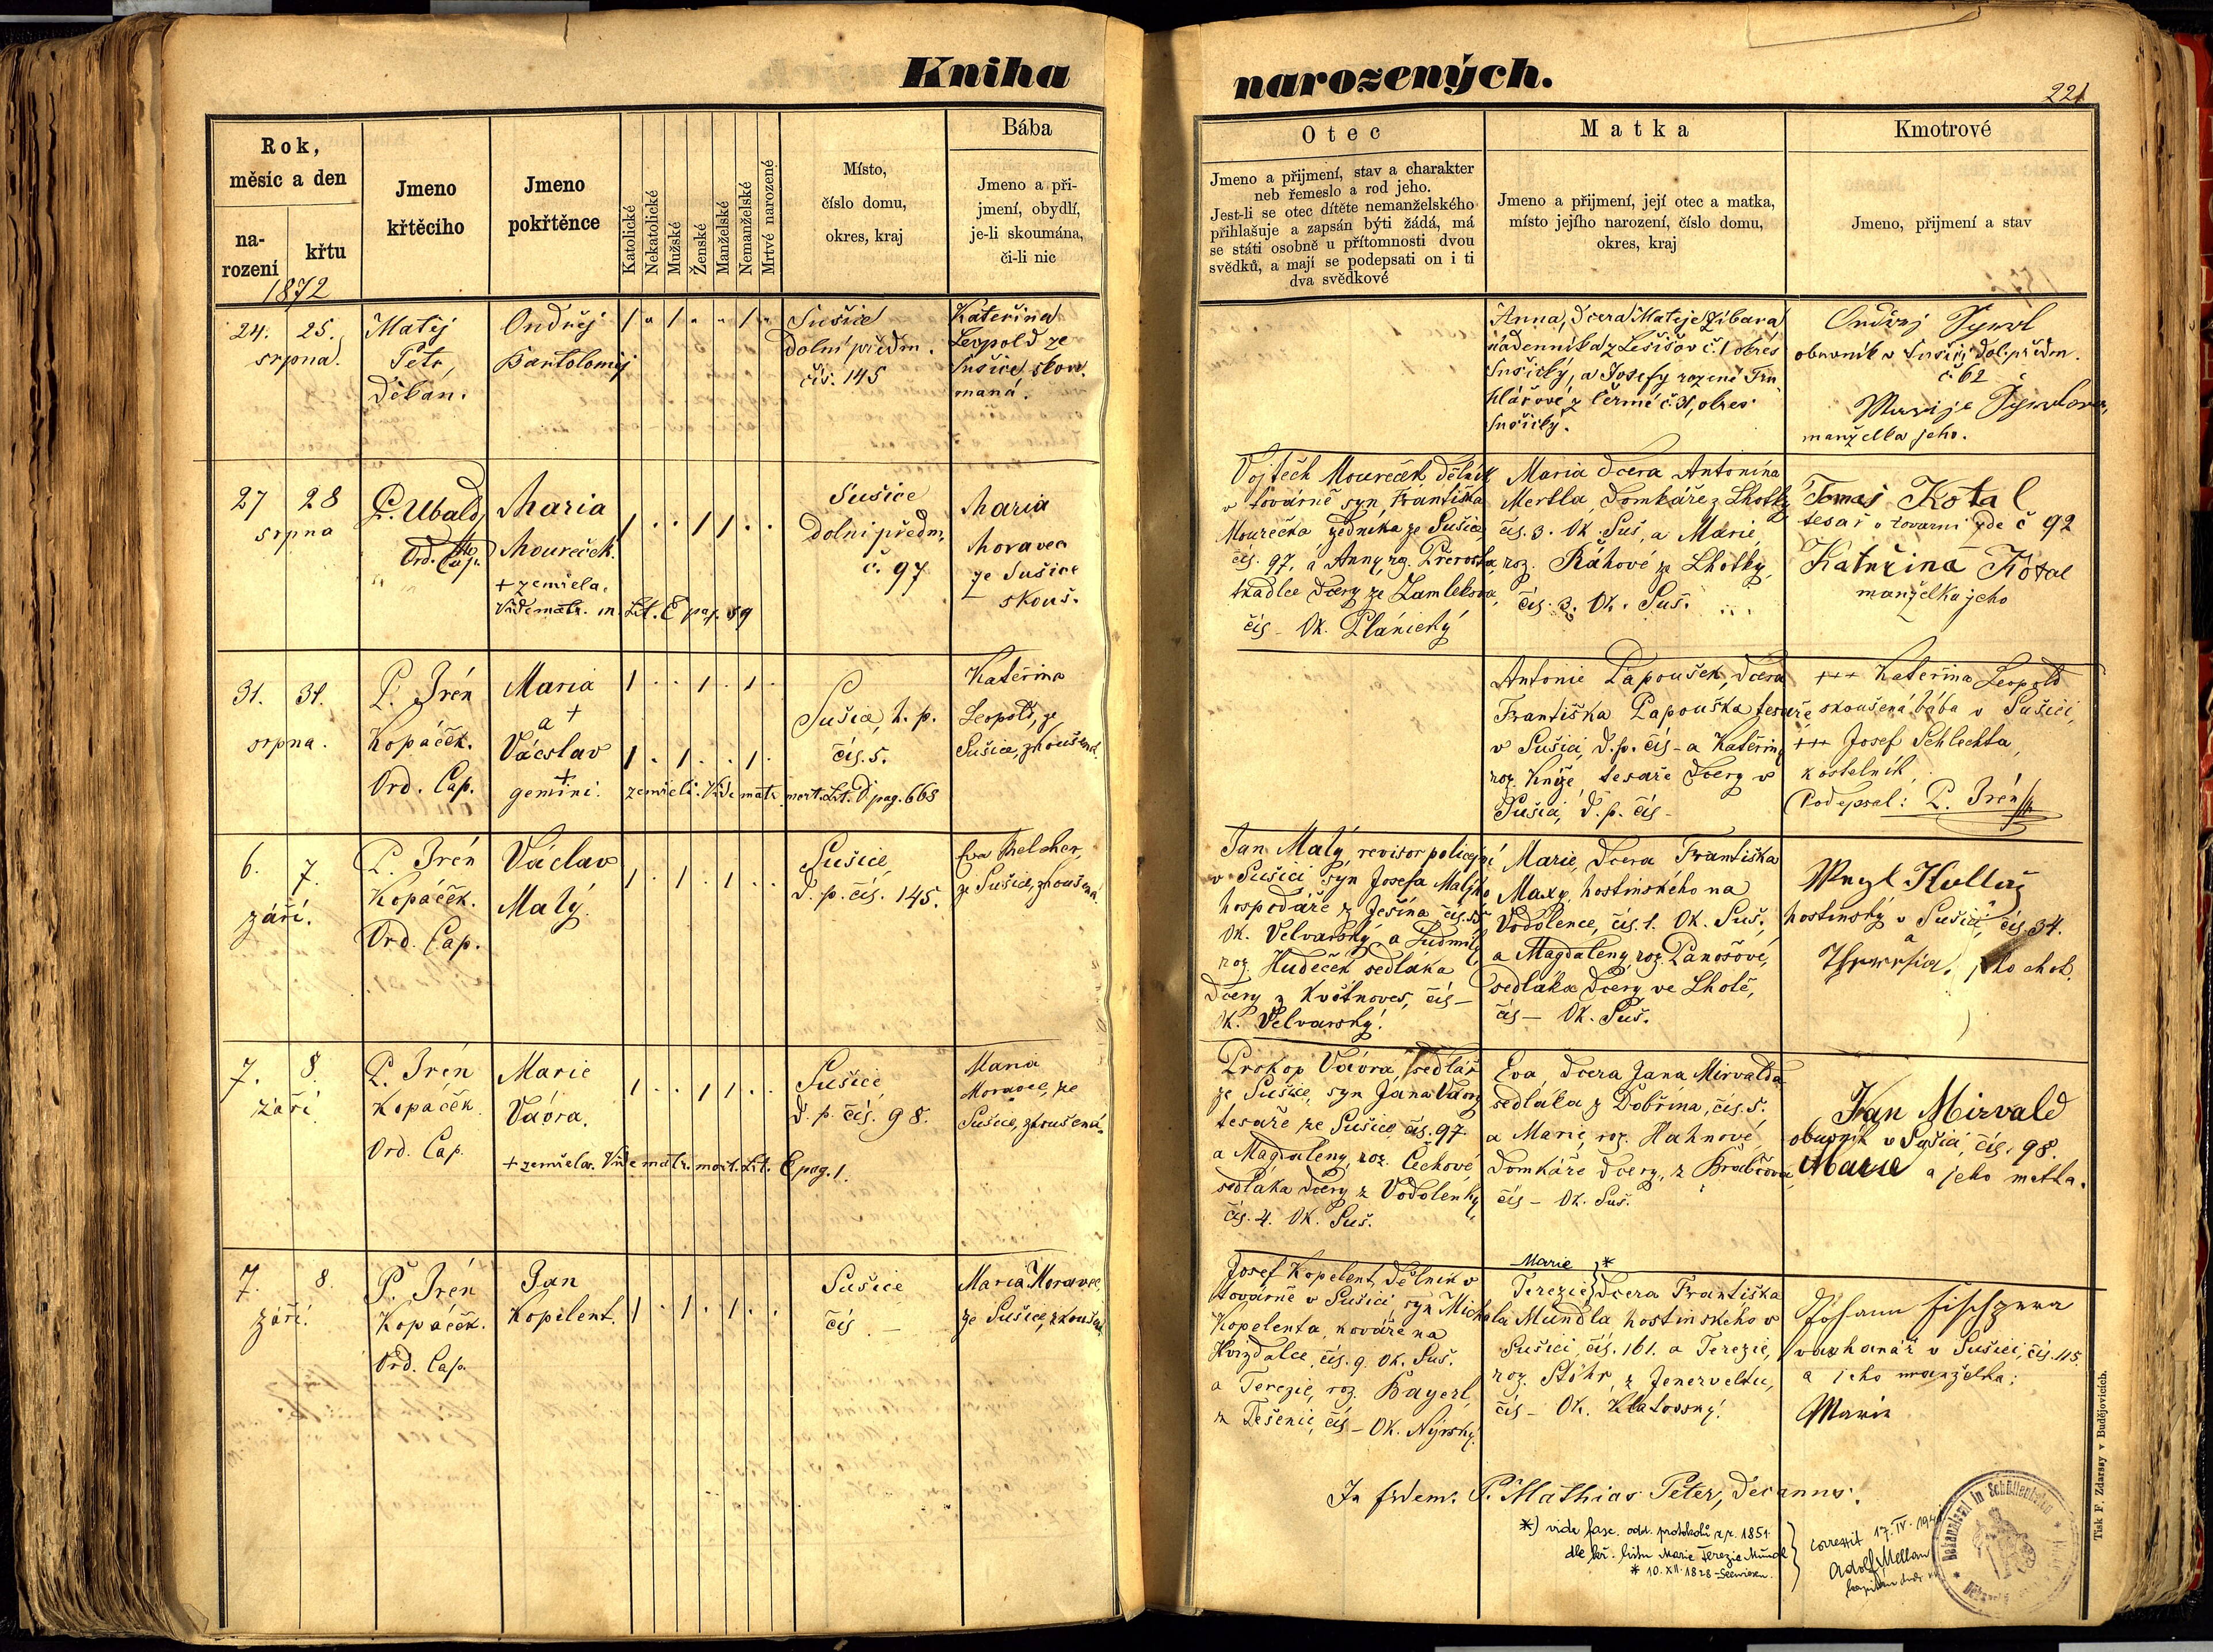 Kniha
narozených.
221
Rok,
měsíc a den
na-
rození
křtu
1872
Jmeno
křtěcího
Jmeno
pokřtěnce
Katolické
Nekatolické
Mužské
Ženské
Manželské
Nemanželské
Mrtvé narozené
Místo,
číslo domu,
okres, kraj
Bába
Jmeno a při-
jmení, obydlí,
je-li skoumána,
či-li nic
Otec
Jmeno a přijmení, stav a charakter
neb řemeslo a rod jeho.
Jest-li se otec dítěte nemanželského
přihlašuje a zapsán býti žádá, má
se státi osobně u přítomnosti dvou
svědků, a mají se podepsati on i ti
dva svědkové
Matka
Jmeno a přijmení, její otec a matka,
místo jejího narození, číslo domu,
okres, kraj
Kmotrové
Jmeno, přijmení a stav
24. 25.
srpna.
Matěj
Petr,
Děkan.
Ondřej
Bartoloměj
Sušice
dolní předm.
čís. 145
Kateřina
Leopold ze
Sušice skou-
maná.
Anna, dcera Matěje
nádenníka z č. 1 okres
Sušický, a Josefy rozené
z č. 31, okres
Sušický.
Ondřej
obuvník v Sušici, dol. předm.
č. 62
manželka jeho.
27 28
srpna
P. Ubald,
Ord. Cap.
Maria
Moureček.
+ zemřela.
Vide matr. m. Lit. E pag. 59
Sušice
Dolní předm,
č. 97
Maria
Moravec
ze Sušice
skouš.
Vojtěch Moureček dělník
v továrně syn Františka
Mourečka zedníka ze Sušice,
čís. 97. a Anny, roz.
tkadlce dcery ze
čís - Ok. Plánický
Maria dcera Antonína
Mertla, domkáře z Lhotky
čís. 3. Ok. Suš, a Marie,
roz. Ráhové ze Lhotky,
čís. 3. Ok. Suš.
Tomaš Kotal
tesař v tovarni zde č 92
Kateřina Kotal
manželka jeho
31. 31.
srpna.
P. Irén
Kopáček.
Ord. Cap.
Maria
+
a
Václav
+
gemini.
zemřeli. Vide matr. mort. Lit. D pag. 668
Sušice, h. p.
čís. 5.
Kateřina
Leopold, ze
Sušice, zkoušená.
Antonie Papoušek, dcera
Františka Papouška tesaře
v Sušici, d. p. čís - a Kateřiny
roz. Kníže, tesaře dcery v
Sušici, d. p. čís -
+++ Kateřina Leopold
skoušená bába v Sušici,
+++ Josef Schlechta,
kostelník,
Podepsal: P. Irén
6. 7.
září.
P. Irén
Kopáček.
Ord. Cap.
Václav
Malý.
Sušice,
d. p. čís. 145.
Eva Melcher,
ze Sušice, zkoušená.
Jan Malý, revisor policejní
v Sušici syn Josefa Malýho
hospodáře z Ješína čís. 55
Ok. Velvarský, a Ludmily
roz. Hudeček sedláka
dcery z Květnoves, čís -
Ok. Velvarský.
Marie, dcera Františka
Maxy, hostinského na
Vodolence, čís. 1. Ok. Suš.,
a Magdaleny, roz. Panošové,
sedláka dcery ve Lhotě,
čís - Ok. Suš.
hostinský v Sušici, čís. 34.
a
jeho choť.
7. 8.
září
P. Irén
Kopáček
Ord. Cap.
Marie
Vávra.
+ zemřela. Vide matr. mort. Lit. E pag. 1.
Sušice,
d. p. čís. 98.
Maria
Moravec, ze
Sušice, zkoušená.
Prokop Vávra, sedlář
ze Sušice, syn Jana Vávry
tesaře ze Sušice čís. 97.
a Magdaleny, roz. Čechové
sedláka dcery z Vodolenky,
čís. 4. Ok. Suš.
Eva dcera Jana Mirvalda
sedláka z Dobřína, čís. 5.
a Marie, roz. Hahnové,
domkáře dcery, z
čís - Ok. Suš.
Jan Mirvald
obuvník v Sušici, čís. 98.
Marie a jeho matka.
7. 8.
září.
P. Irén
Kopáček.
Ord. Cap.
Jan
Kopelent.
Sušice
čís -
Maria Moravec,
ze Sušice, zkoušená
Josef Kopelent, dělník v
továrně v Sušici, syn Michala
Kopelenta, kováře na
čís. 9. Ok. Suš.
a Terezie, roz. Bayerl,
z Dešenic, čís - Ok. Nýrský.
Marie *
Terezie dcera Františka
Mündla hostinského v
Sušici, čís. 161. a Terezie,
roz. Stöhr, z Jenerveltu,
čís - Ok. Klatovský.
Johann
v Sušici, čís. 115.
a jeho manželka:
Marie
In fidem: P. Mathias Peter, Decanus.
*) vide fasc. odd. protokolů z r. 1851
dle kř. listu Marie Terezie Mündl
* 10. XII. 1828 - Seewiesen.
correxit 17. IV. 194
Adolf Mellan
Dekanalamt in Schüttenhofen
Tisk F. Zdarssy v Budějovicích.